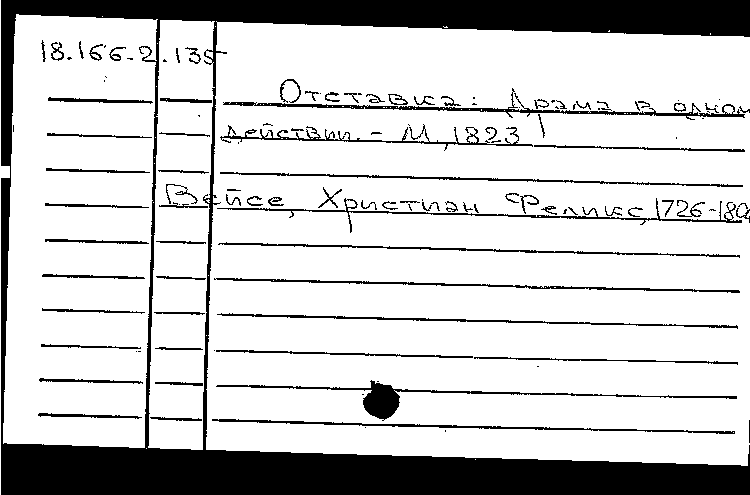 18.166.2.135
Отставка: Драма в одном
действии. - М, 1823
Вейсе, Христиан Феликс, 1726-180